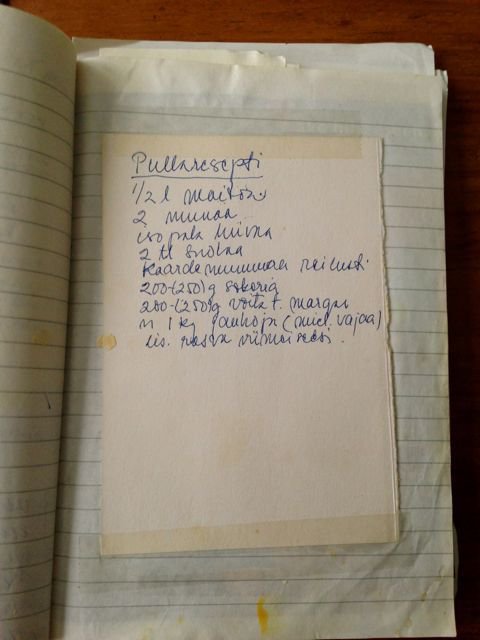 Pullaresepti
1/2 l maitoa
2 munaa
iso pala hiivaa
2 tl suolaa
kaardemummaa reilusti
200-(250)g sokeria
200-(250)g voita t. margar
n. 1 kg jauhoja (miel. vajaa)
lis. rasva viimeiseksi.